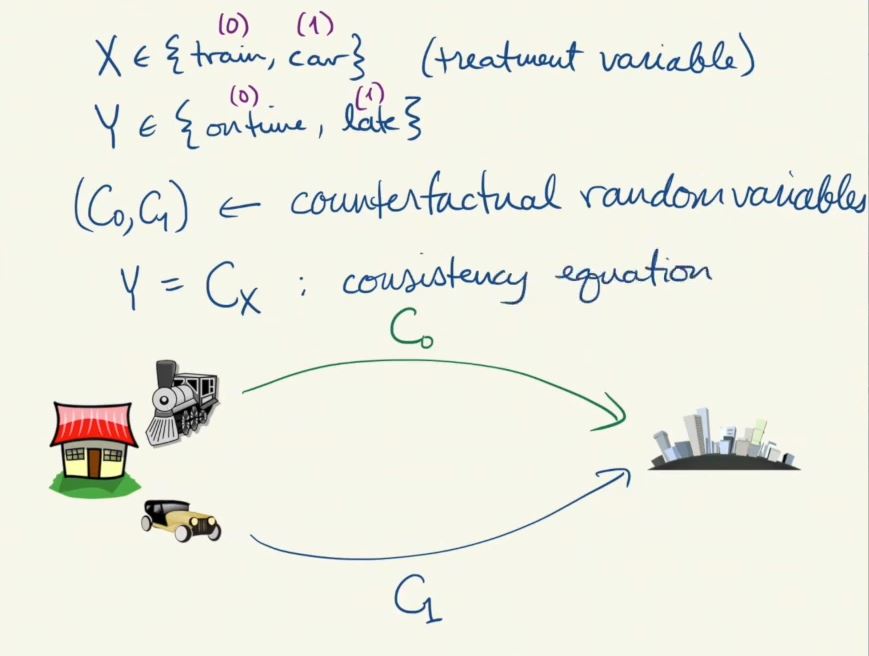 (0) (1)
X ∈ {train, car} (treatment variable)
(0) (1)
Y ∈ {ontime, late}
(C₀, C₁) ← counterfactual random variables
Y = C_X : consistency equation
C₀
C₁